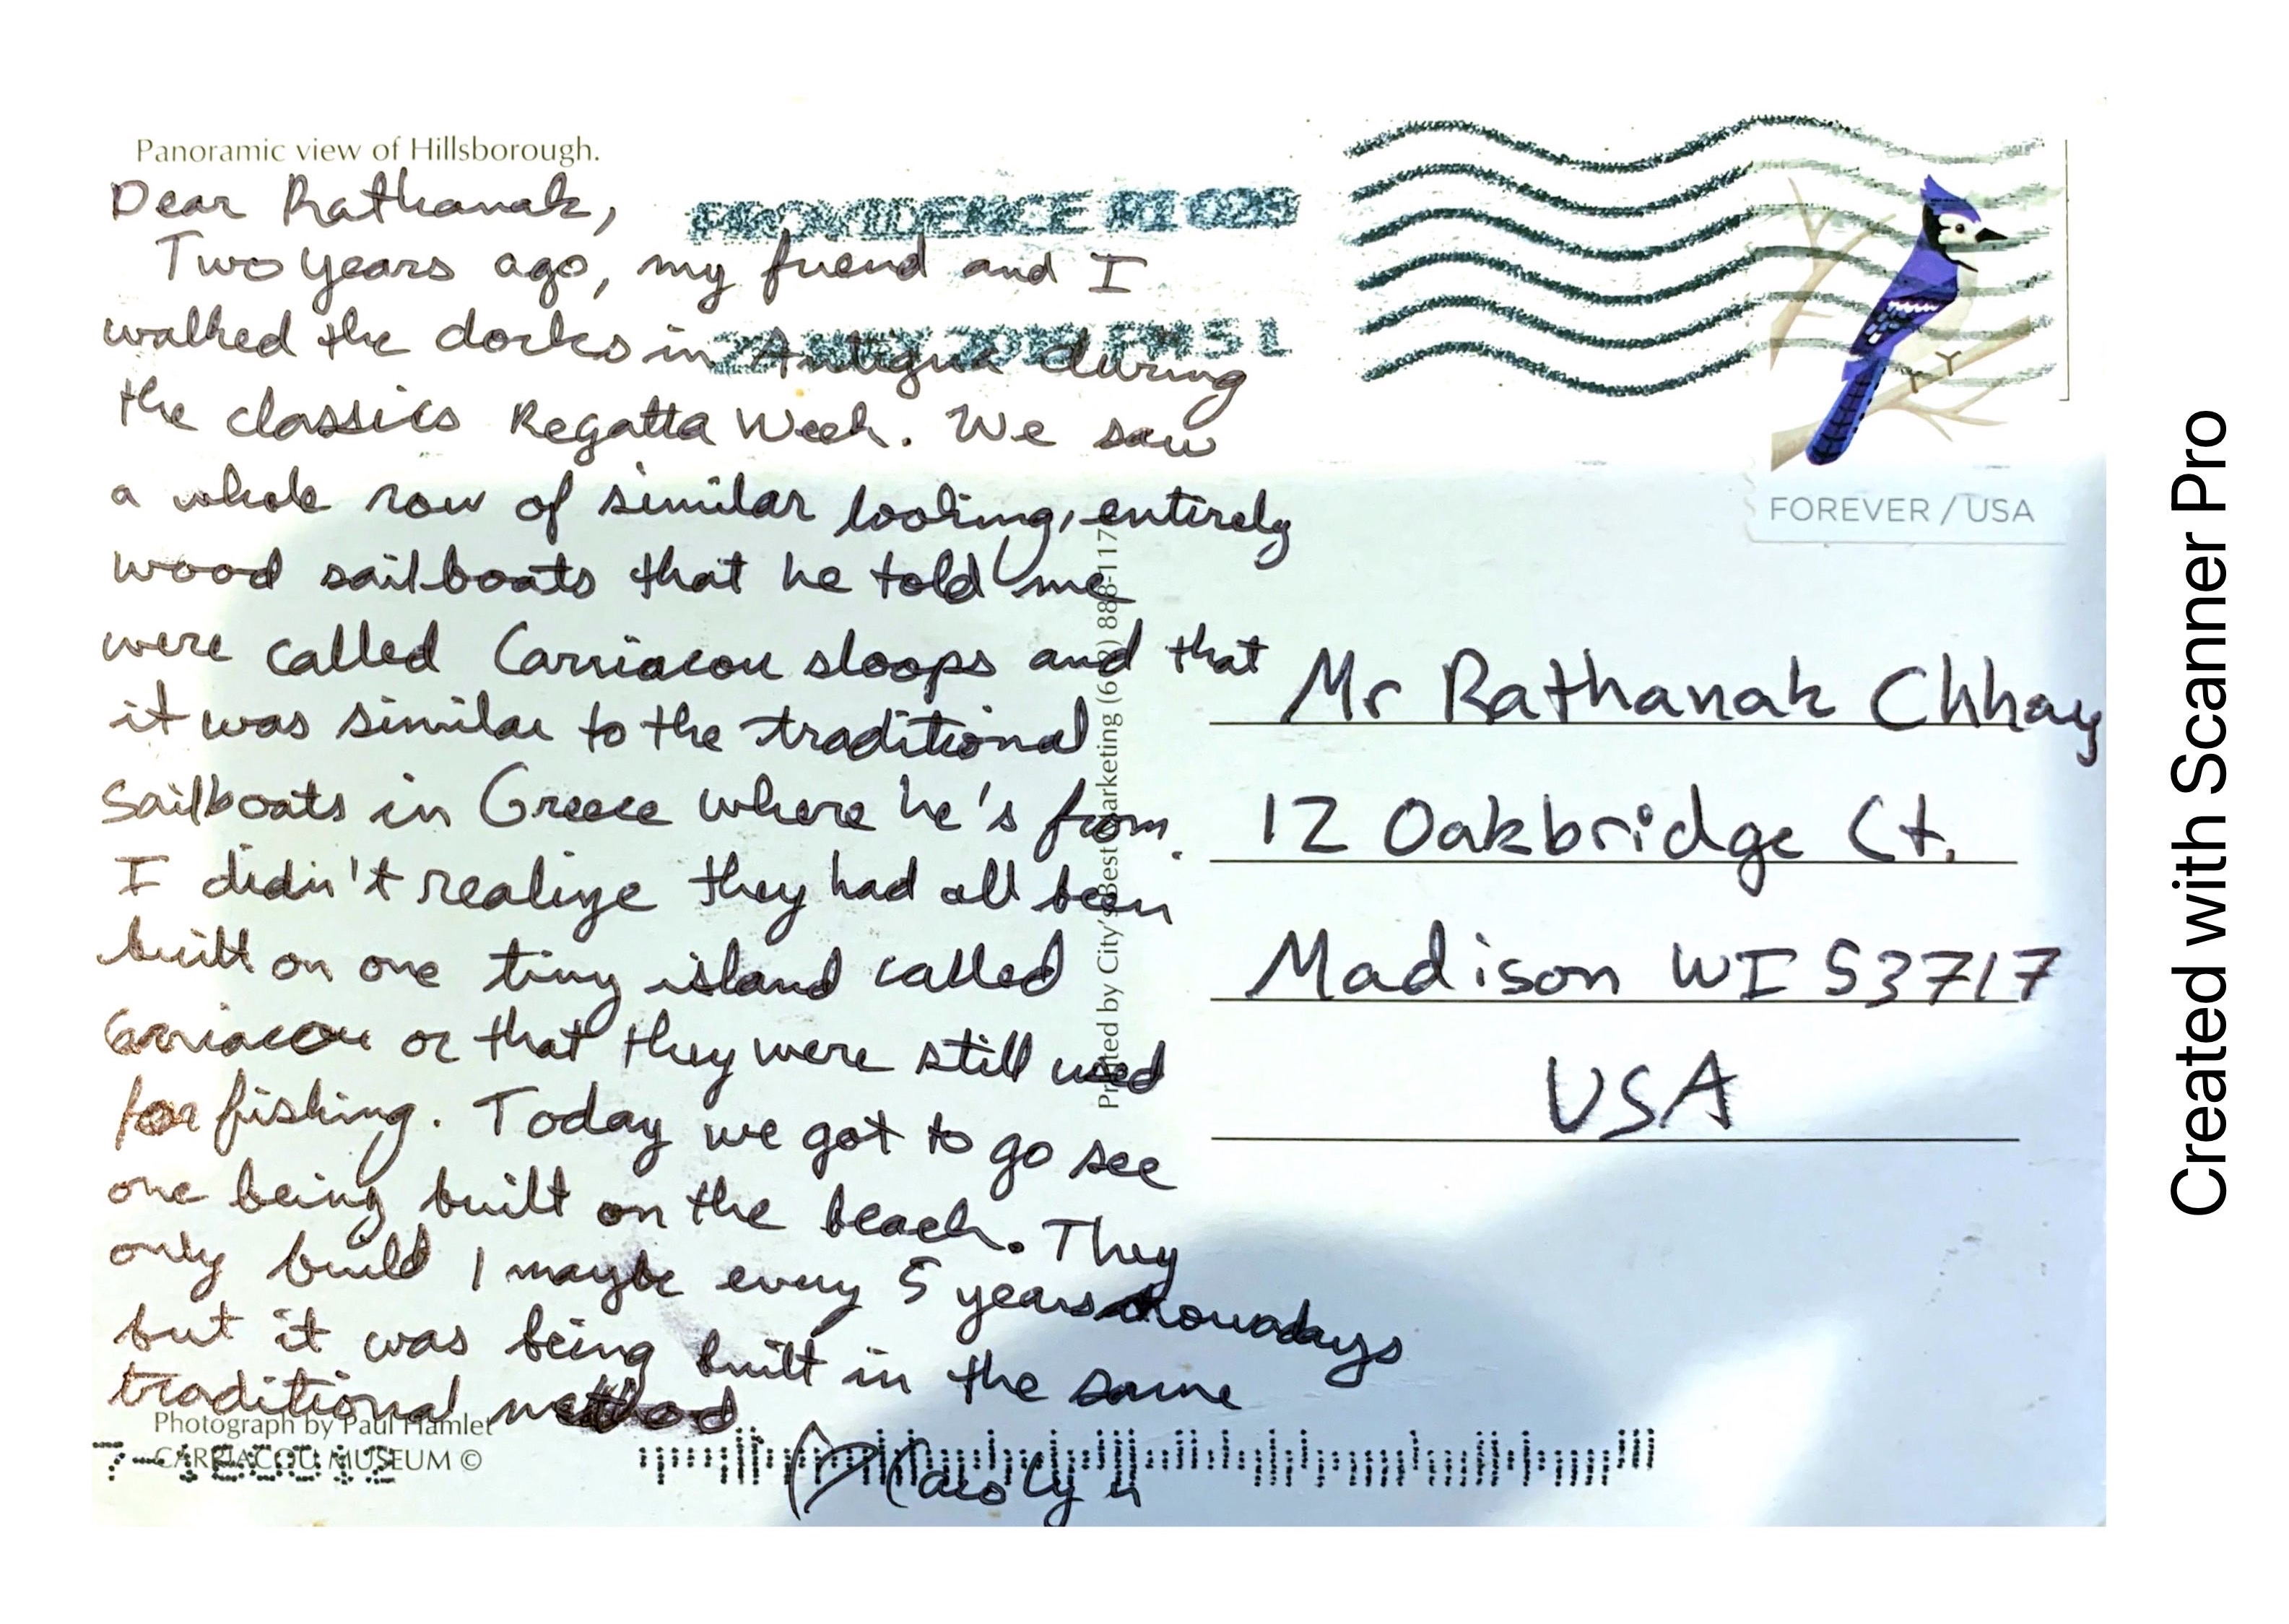 Panoramic view of Hillsborough.
Dear Rathanak,
Two years ago, my friend and I
walked the docks in Antigua during
the classics Regatta Week. We saw
a whole row of similar looking, entirely
wood sailboats that he told me
were called Carriacou sloops and that
it was similar to the traditional
sailboats in Greece where he's from.
I didn't realize they had all been
built on one tiny island called
Carriacou or that they were still used
for fishing. Today we got to go see
one being built on the beach. They
only build 1 maybe every 5 years nowadays
but it was being built in the same
traditional method
Carolyn
Photograph by Paul Hamlet
CARRIACOU MUSEUM ©
PROVIDENCE RI 029
PM 5 L
FOREVER / USA
Printed by City's Best Marketing
Mr Rathanak Chhay
12 Oakbridge Ct.
Madison WI 53717
USA
Created with Scanner Pro